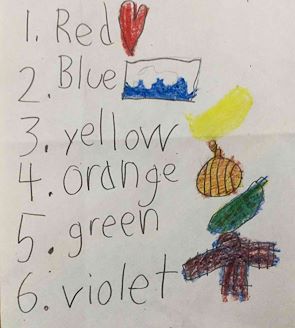 1. Red
2. Blue
3. yellow
4. orange
5. green
6. violet